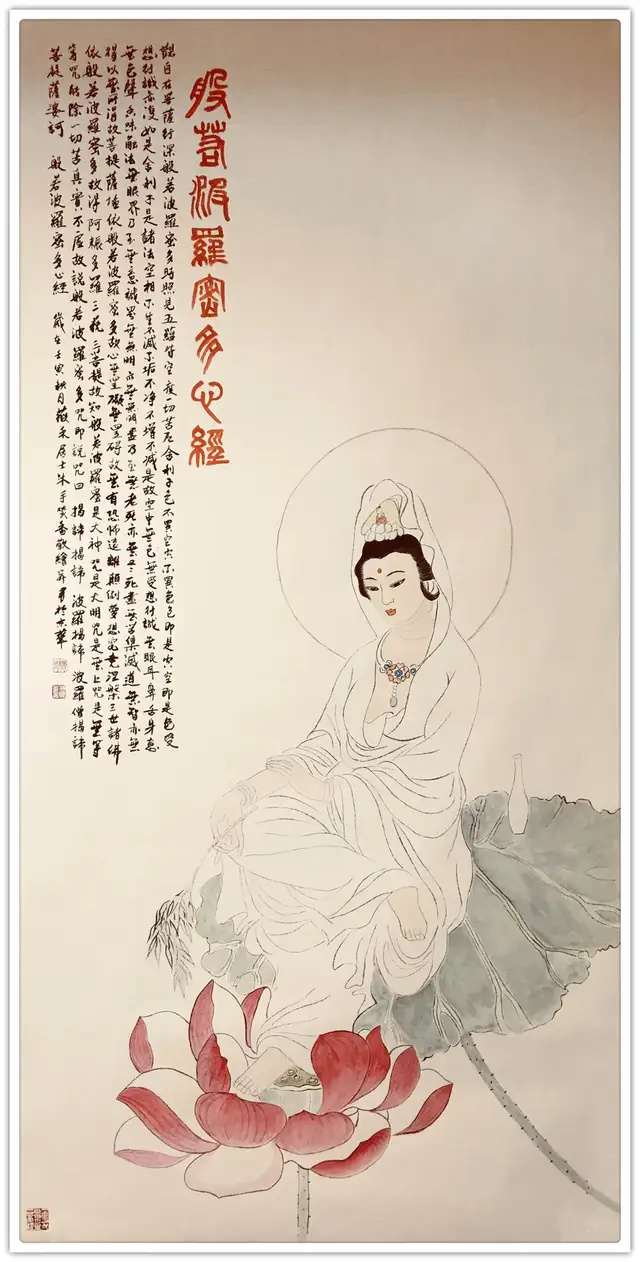 般若波羅蜜多心經
觀自在菩薩行深般若波羅蜜多時照見五蘊皆空度一切苦厄舍利子色不異空空不異色色即是空空即是色受
想行識亦復如是舍利子是諸法空相不生不滅不垢不净不增不減是故空中無色無受想行識無眼耳鼻舌身意
無色聲香味觸法無眼界乃至無意識界無無明亦無無明盡乃至無老死亦無老死盡無苦集滅道無智亦無
得以無所得故菩提薩埵依般若波羅蜜多故心無罣礙無罣碍故無有恐怖遠離顛倒夢想究竟涅槃三世諸佛
依般若波羅蜜多故得阿耨多羅三藐三菩提故知般若波羅蜜是大神咒是大明咒是無上咒是無等
等咒能除一切苦真實不虛故説般若波羅蜜多咒即説咒曰 揭諦揭諦 波羅揭諦 波羅僧揭諦
菩提薩婆訶 般若波羅蜜多心經 歲在壬寅秋月 居士朱 焚香敬繪并書於京華